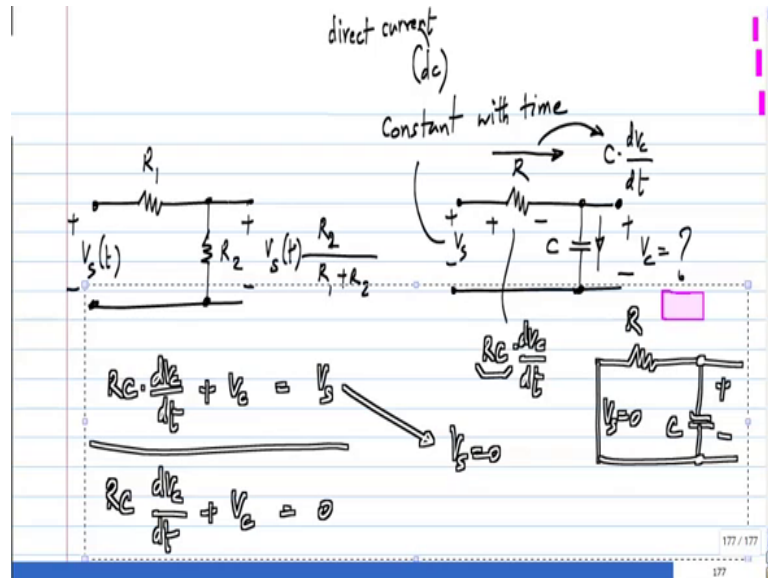 direct current
(dc)
Constant with time
R₁
R
C · dv_c/dt
+ + + - +
V_s(t) R₂ V_s(t) R₂/(R₁+R₂) V_s C V_c = ?
- - - -
RC · dv_c/dt
R
RC · dv_c/dt + V_c = V_s
V_s=0 C + -
V_s=0
RC dv_c/dt + V_c = 0
177 / 177
177